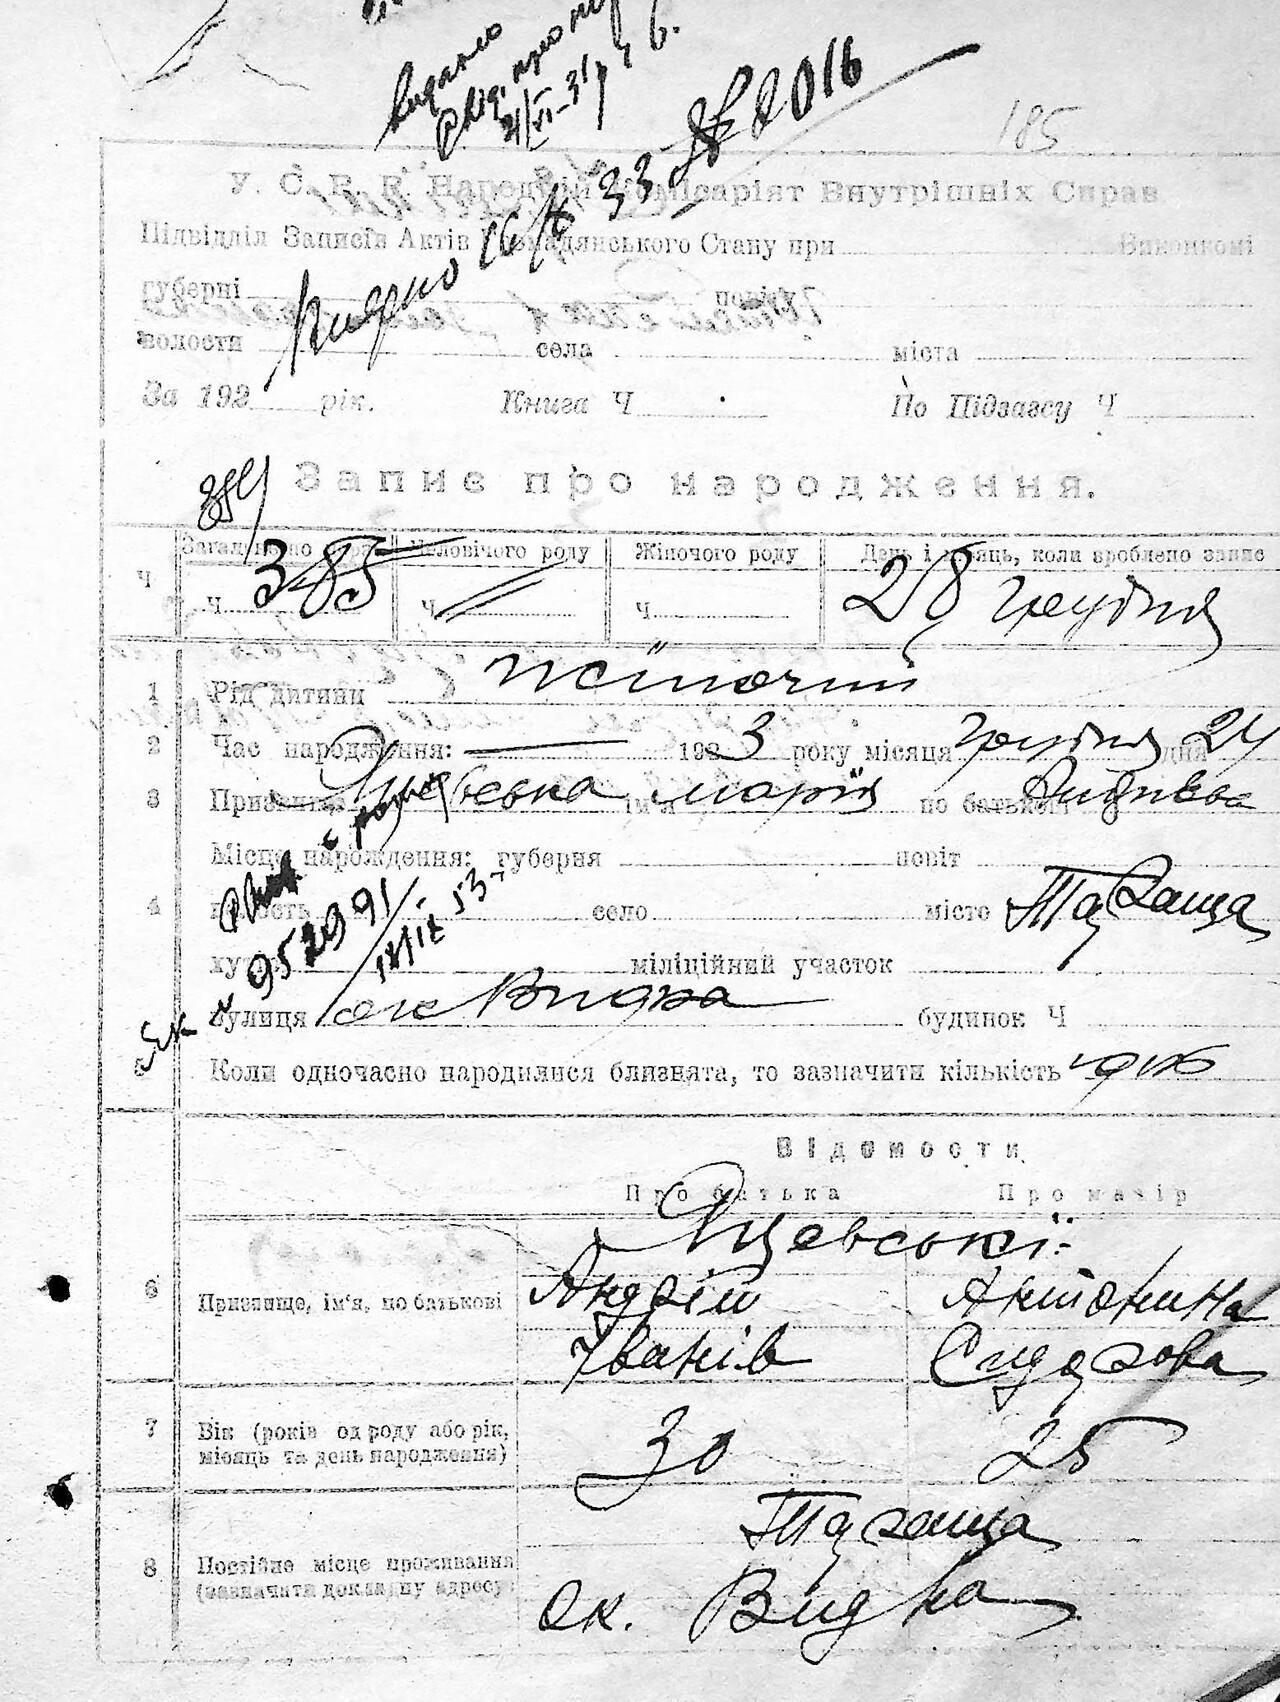 Видано
свід. про нар
21/VI-31 р
№ 2016
Видано 16/X 33
185
У. С. Р. Р. Народній Комісаріят Внутрішніх Справ
Підвідділ Записів Актів Громадянського Стану при Виконкомі
губерні повіту
волости села міста
За 192 рік. Книга Ч По Підзагсу Ч
384
Запис про народження.
Загального Чоловічого роду Жіночого роду День і місяць, коли зроблено запис
Ч ч. 385 ч. ч. 28 грудня
1 Рід дитини жіночий
2 Час народження: 1923 року місяця грудня дня 24
3 Призвище Ящевська ім'я Марія по батькові Андрієва
Місце народження: губерня повіт
4 волость село місто Тараща
952991
18/IX 53
хутір міліційний участок
вулиця ок Видра будинок Ч
5 Коли одночасно народилися близнята, то зазначити кількість одно
Відомости
Про батька Про матір
Ящевські:
6 Призвище, ім'я, по батькові Андрій Антонина
Іванів Сидорова
7 Вік (років од роду або рік, 30 25
місяць та день народження)
Тараща
8 Постійне місце проживання
(зазначити докладну адресу)
ок. Видра